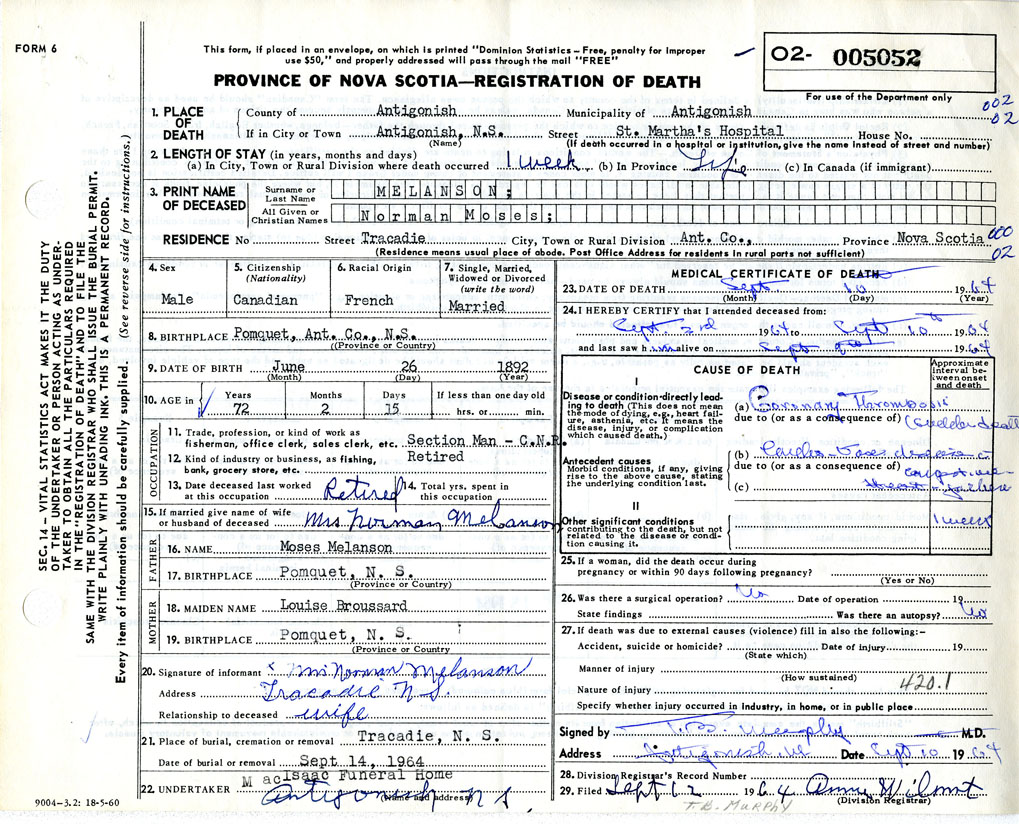 FORM 6
This form, if placed in an envelope, on which is printed "Dominion Statistics – Free, penalty for improper
use $50," and properly addressed will pass through the mail "FREE"
PROVINCE OF NOVA SCOTIA—REGISTRATION OF DEATH
O2- 005052
For use of the Department only
002
02
1. PLACE OF DEATH
County of Antigonish Municipality of Antigonish
If in City or Town Antigonish, N.S. Street St. Martha's Hospital House No.
(Name) (If death occurred in a hospital or institution, give the name instead of street and number)
2. LENGTH OF STAY (in years, months and days)
(a) In City, Town or Rural Division where death occurred 1 week (b) In Province Life (c) In Canada (if immigrant)
3. PRINT NAME OF DECEASED
Surname or Last Name MELANSON;
All Given or Christian Names Norman Moses;
RESIDENCE No Street Tracadie City, Town or Rural Division Ant. Co., Province Nova Scotia
000
02
(Residence means usual place of abode. Post Office Address for residents in rural parts not sufficient)
4. Sex
Male
5. Citizenship
(Nationality)
Canadian
6. Racial Origin
French
7. Single, Married,
Widowed or Divorced
(write the word)
Married
8. BIRTHPLACE Pomquet, Ant. Co., N.S.
(Province or Country)
9. DATE OF BIRTH June 26 1892
(Month) (Day) (Year)
10. AGE in Years Months Days If less than one day old
72 2 15 hrs. or min.
OCCUPATION
11. Trade, profession, or kind of work as
fisherman, office clerk, sales clerk, etc. Section Man - C.N.R.
12. Kind of industry or business, as fishing,
bank, grocery store, etc. Retired
13. Date deceased last worked
at this occupation Retired
14. Total yrs. spent in
this occupation
15. If married give name of wife
or husband of deceased Mrs Norman Melanson
FATHER
16. NAME Moses Melanson
17. BIRTHPLACE Pomquet, N. S.
(Province or Country)
MOTHER
18. MAIDEN NAME Louise Broussard
19. BIRTHPLACE Pomquet, N. S.
(Province or Country)
20. Signature of informant Mrs Norman Melanson
Address Tracadie N S.
Relationship to deceased wife
21. Place of burial, cremation or removal Tracadie, N. S.
Date of burial or removal Sept 14, 1964
22. UNDERTAKER MacIsaac Funeral Home
Antigonish N S
(Name and address)
9004-3.2: 18-5-60
MEDICAL CERTIFICATE OF DEATH
23. DATE OF DEATH Sept 10 1964
(Month) (Day) (Year)
24. I HEREBY CERTIFY that I attended deceased from:
Sept 2nd 1964 to Sept 10th 1964
and last saw him alive on Sept 1964
CAUSE OF DEATH
Approximate interval between onset and death
I
Disease or condition directly leading to death (This does not mean the mode of dying, e.g., heart failure, asthenia, etc. It means the disease, injury, or complication which caused death.)
(a) Coronary Thrombosis
due to (or as a consequence of) (sudden death
Antecedent causes
Morbid conditions, if any, giving rise to the above cause, stating the underlying condition last.
(b)
due to (or as a consequence of)
(c) Heart failure
II
Other significant conditions
contributing to the death, but not related to the disease or condition causing it.
1 week
25. If a woman, did the death occur during
pregnancy or within 90 days following pregnancy?
(Yes or No)
26. Was there a surgical operation? No Date of operation 19
State findings Was there an autopsy? No
27. If death was due to external causes (violence) fill in also the following:–
Accident, suicide or homicide? Date of injury 19
(State which)
Manner of injury
(How sustained)
Nature of injury 420.1
Specify whether injury occurred in industry, in home, or in public place
Signed by T.B. Murphy M.D.
Address Antigonish, Date Sept 10 1964
28. Division Registrar's Record Number
29. Filed Sept 12 1964 Anne Wilmot
(Division Registrar)
T.B. MURPHY
SEC. 14 – VITAL STATISTICS ACT MAKES IT THE DUTY
OF THE UNDERTAKER OR PERSON ACTING AS UNDER-
TAKER TO OBTAIN ALL THE PARTICULARS REQUIRED
IN THE "REGISTRATION OF DEATH" AND TO FILE THE
SAME WITH THE DIVISION REGISTRAR WHO SHALL ISSUE THE BURIAL PERMIT.
WRITE PLAINLY WITH UNFADING INK. THIS IS A PERMANENT RECORD.
Every item of information should be carefully supplied. (See reverse side for instructions.)